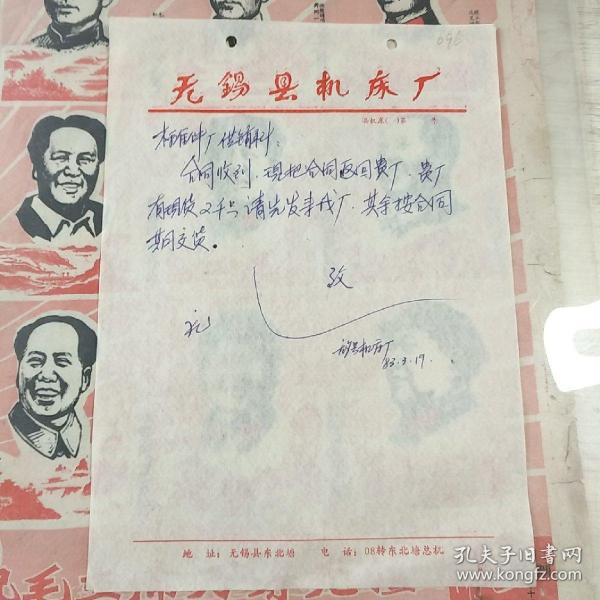 096
无锡县机床厂
县机床( )字第 号
标准件厂供销科:
合同收到,现把合同返回贵厂,贵厂
有现货2千只请先发来我厂,其余按合同
期交货。
致
礼
无锡县机床厂
83.3.19.
地 址:无锡县东北塘 电 话:08转东北塘总机
孔夫子旧书网
www.kongfz.com